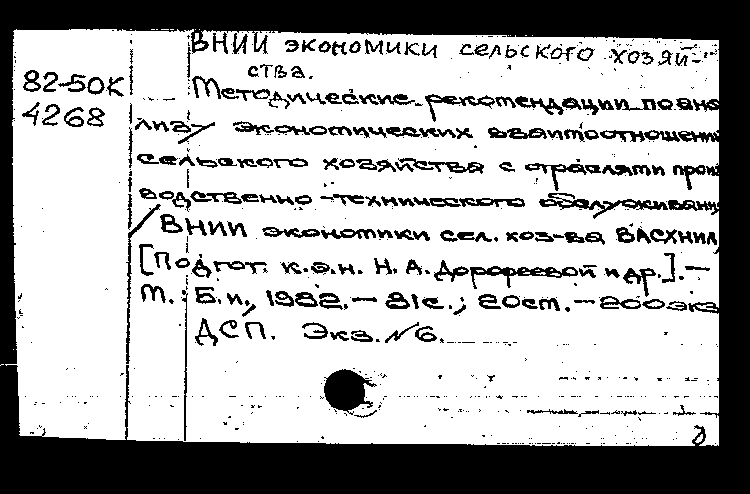 ВНИИ экономики сельского хозяй-
ства.
82-50К
4268
Методические рекомендации по ана
лизу экономических взаимоотношени
сельского хозяйства с отраслями прои
водственно-технического обслуживани
/ ВНИИ экономики сел. хоз-ва ВАСХНИЛ,
[Подгот. к.э.н. Н.А. Дорофеевой и др.]. —
М.: Б.и., 1982. — 81с.; 20см. — 200экз
ДСП. Экз. №6.